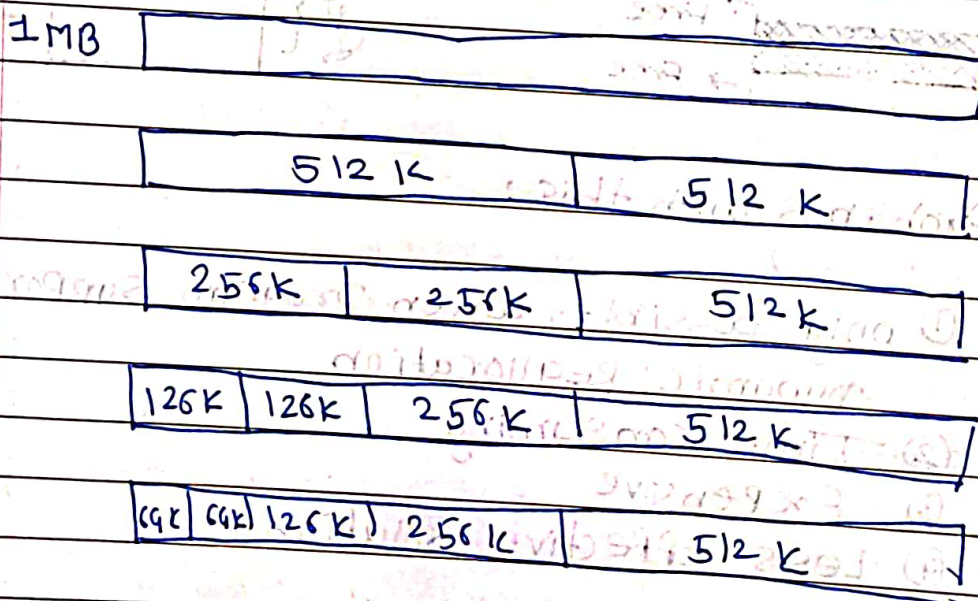 1MB
512 K 512 K
256K 256K 512K
126K 126K 256K 512K
64K 64K 126K 256K 512K